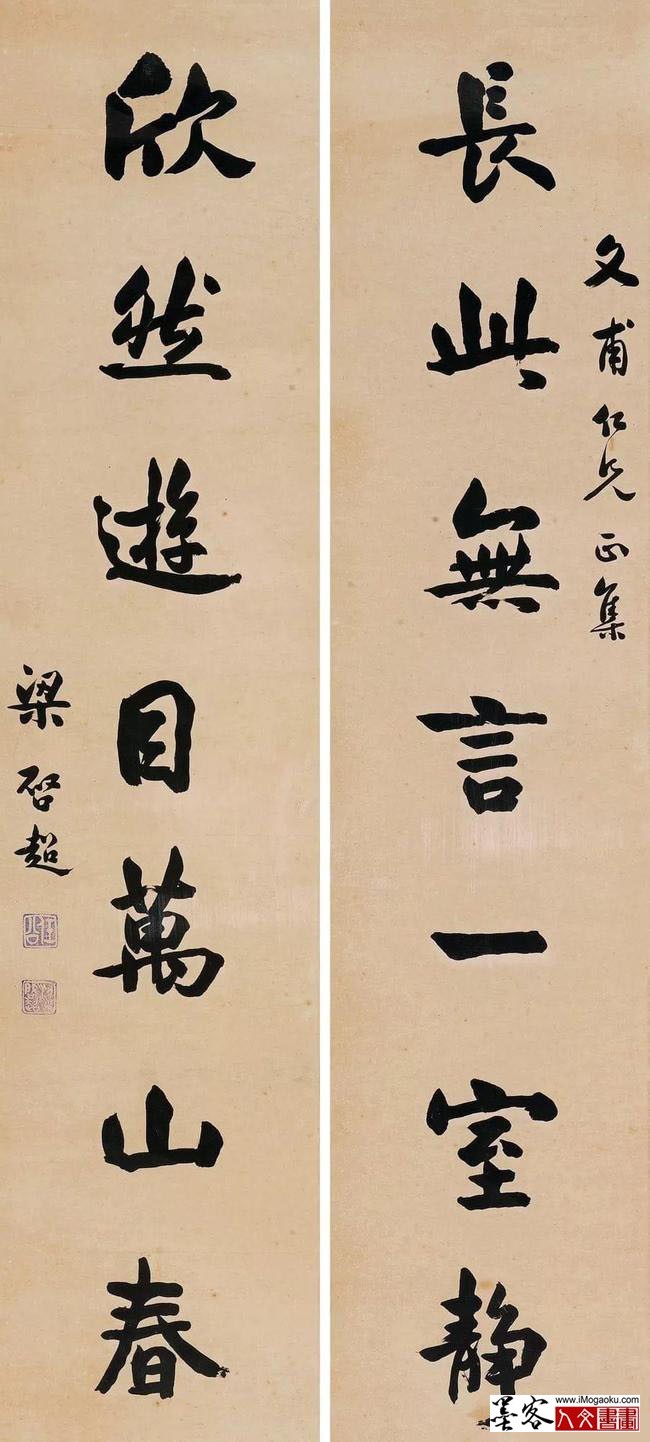 文甫仁兄正集
長此無言一室静
欣然遊目萬山春
梁啓超
墨客
www.iMogaoku.com
人文書畫